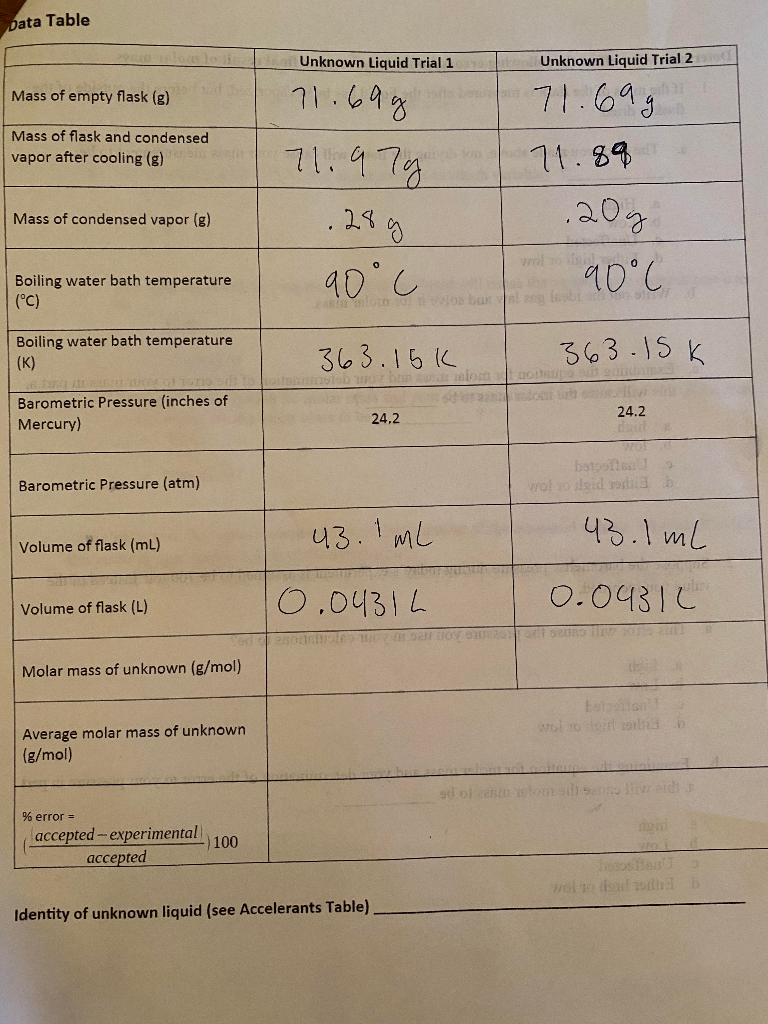 Data Table
Unknown Liquid Trial 1
Unknown Liquid Trial 2
Mass of empty flask (g)
71.69g
71.69g
Mass of flask and condensed
vapor after cooling (g)
71.97g
71.89
Mass of condensed vapor (g)
.28g
.20g
Boiling water bath temperature
(°C)
90°C
90°C
Boiling water bath temperature
(K)
363.15 K
363.15 K
Barometric Pressure (inches of
Mercury)
24.2
24.2
Barometric Pressure (atm)
Volume of flask (mL)
43.1 mL
43.1 mL
Volume of flask (L)
0.0431 L
0.0431 L
Molar mass of unknown (g/mol)
Average molar mass of unknown
(g/mol)
% error =
(|accepted – experimental| / accepted) 100
Identity of unknown liquid (see Accelerants Table)